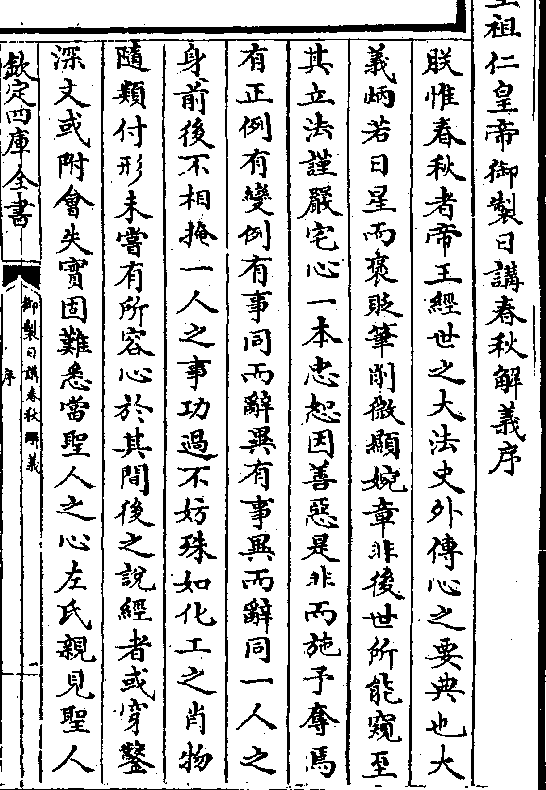 祖仁皇帝御製日講春秋解義序
朕惟春秋者帝王經世之大法史外傳心之要典也大
義炳若日星而褒貶筆削微顯婉章非後世所能窺至
其立法謹嚴宅心一本忠恕因善惡是非而施予奪焉
有正例有變例有事同而辭異有事異而辭同一人之
身前後不相掩一人之事功過不妨殊如化工之肖物
隨類付形未嘗有所容心於其間後之說經者或穿鑿
深文或附會失實固難悉當聖人之心左氏親見聖人
欽定四庫全書
御製日講春秋解義
序
一